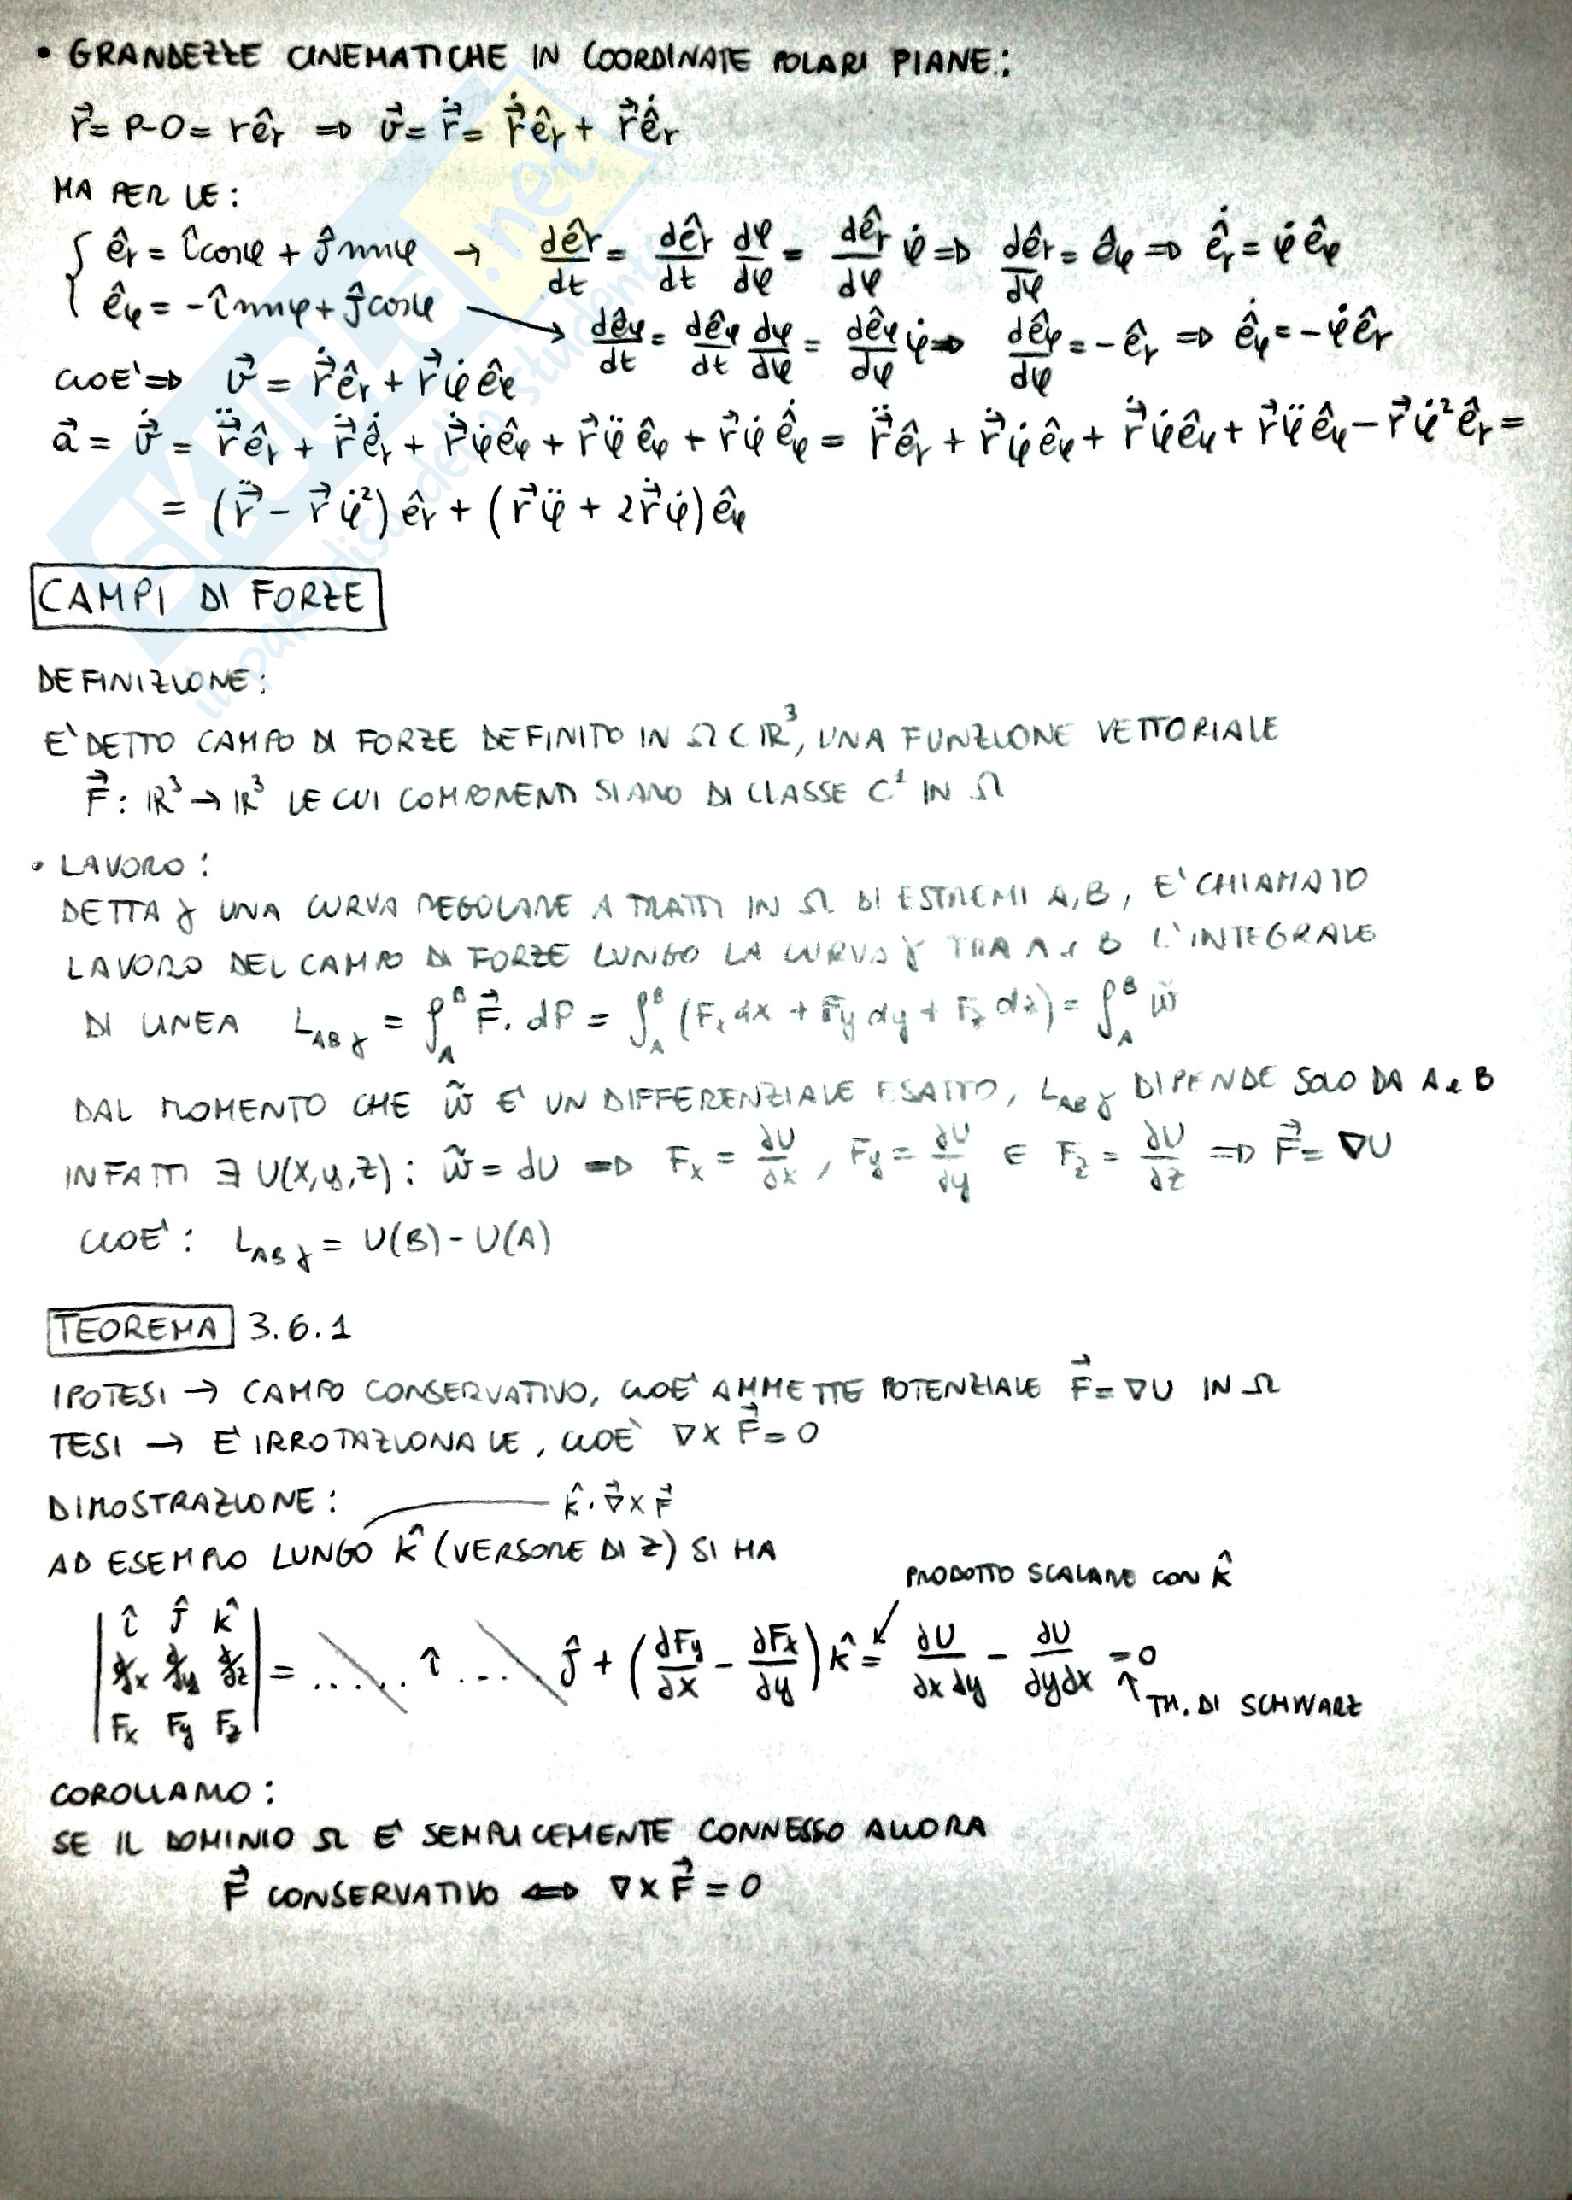 • GRANDEZZE CINEMATICHE IN COORDINATE POLARI PIANE:
r⃗ = P-O = r ê_r ⇒ v⃗ = ṙ⃗ = ṙ⃗ ê_r + r⃗ ê̇_r
MA PER LE:
{ ê_r = î cosφ + ĵ sinφ → dê_r/dt = dê_r/dt dφ/dφ = dê_r/dφ φ̇ ⇒ dê_r/dφ = ê_φ ⇒ ê̇_r = φ̇ ê_φ
ê_φ = -î sinφ + ĵ cosφ → dê_φ/dt = dê_φ/dt dφ/dφ = dê_φ/dφ φ̇ ⇒ dê_φ/dφ = -ê_r ⇒ ê̇_φ = -φ̇ ê_r
CIOE' ⇒ v⃗ = ṙ⃗ ê_r + r⃗ φ̇ ê_φ
a⃗ = v̇⃗ = r̈⃗ ê_r + ṙ⃗ ê̇_r + ṙ⃗ φ̇ ê_φ + r⃗ φ̈ ê_φ + r⃗ φ̇ ê̇_φ = r̈⃗ ê_r + ṙ⃗ φ̇ ê_φ + ṙ⃗ φ̇ ê_φ + r⃗ φ̈ ê_φ - r⃗ φ̇² ê_r =
= (r̈⃗ - r⃗ φ̇²) ê_r + (r⃗ φ̈ + 2ṙ⃗ φ̇) ê_φ
CAMPI DI FORZE
DEFINIZIONE:
E' DETTO CAMPO DI FORZE DEFINITO IN Ω ⊂ ℝ³, UNA FUNZIONE VETTORIALE
F⃗: ℝ³ → ℝ³ LE CUI COMPONENTI SIANO DI CLASSE C¹ IN Ω
• LAVORO:
DETTA γ UNA CURVA REGOLARE A TRATTI IN Ω DI ESTREMI A, B, E' CHIAMATO
LAVORO DEL CAMPO DI FORZE LUNGO LA CURVA γ TRA A e B L'INTEGRALE
DI LINEA L_ABγ = ∫_A^B F⃗ · dP = ∫_A^B (F_x dx + F_y dy + F_z dz) = ∫_A^B w̃
DAL MOMENTO CHE w̃ E' UN DIFFERENZIALE ESATTO, L_ABγ DIPENDE SOLO DA A e B
INFATTI ∃ U(x,y,z): w̃ = dU ⇒ F_x = ∂U/∂x, F_y = ∂U/∂y E F_z = ∂U/∂z ⇒ F⃗ = ∇U
CIOE': L_ABγ = U(B) - U(A)
TEOREMA 3.6.1
IPOTESI → CAMPO CONSERVATIVO, CIOE' AMMETTE POTENZIALE F⃗ = ∇U IN Ω
TESI → E' IRROTAZIONALE, CIOE' ∇ × F⃗ = 0
DIMOSTRAZIONE: k̂ · ∇⃗ × F⃗
AD ESEMPIO LUNGO k̂ (VERSORE DI z) SI HA
PRODOTTO SCALARE CON k̂
| î ĵ k̂ |
| ∂/∂x ∂/∂y ∂/∂z | = ..... î ... ĵ + (∂F_y/∂x - ∂F_x/∂y) k̂ = ∂U/∂x∂y - ∂U/∂y∂x = 0
| F_x F_y F_z | ↑ TH. DI SCHWARZ
COROLLARIO:
SE IL DOMINIO Ω E' SEMPLICEMENTE CONNESSO ALLORA
F⃗ CONSERVATIVO ⇔ ∇ × F⃗ = 0
SKUOLA.net
il paradiso dello studente